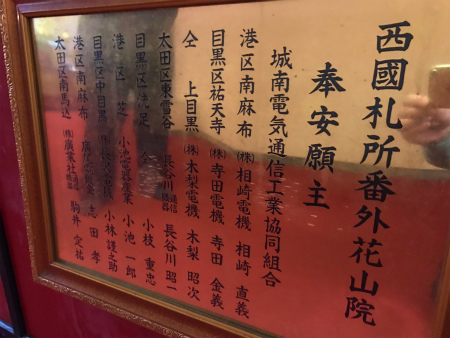 西國札所番外花山院
奉安願主
城南電気通信工業協同組合
港区南麻布 (株)相崎電機 相崎 直義
目黒区祐天寺 (株)寺田電機 寺田 金義
仝 上目黒 (株)木梨電機 木梨 昭次
太田区東雪谷 長谷川通信機器 長谷川 昭一
目黒区洗足 小枝 重忠
港区 芝 小池 一郎
目黒区中目黒 小林 謹之助
港区南麻布 志田 孝
太田区南馬込 (株)廣業社 駒井 定祐